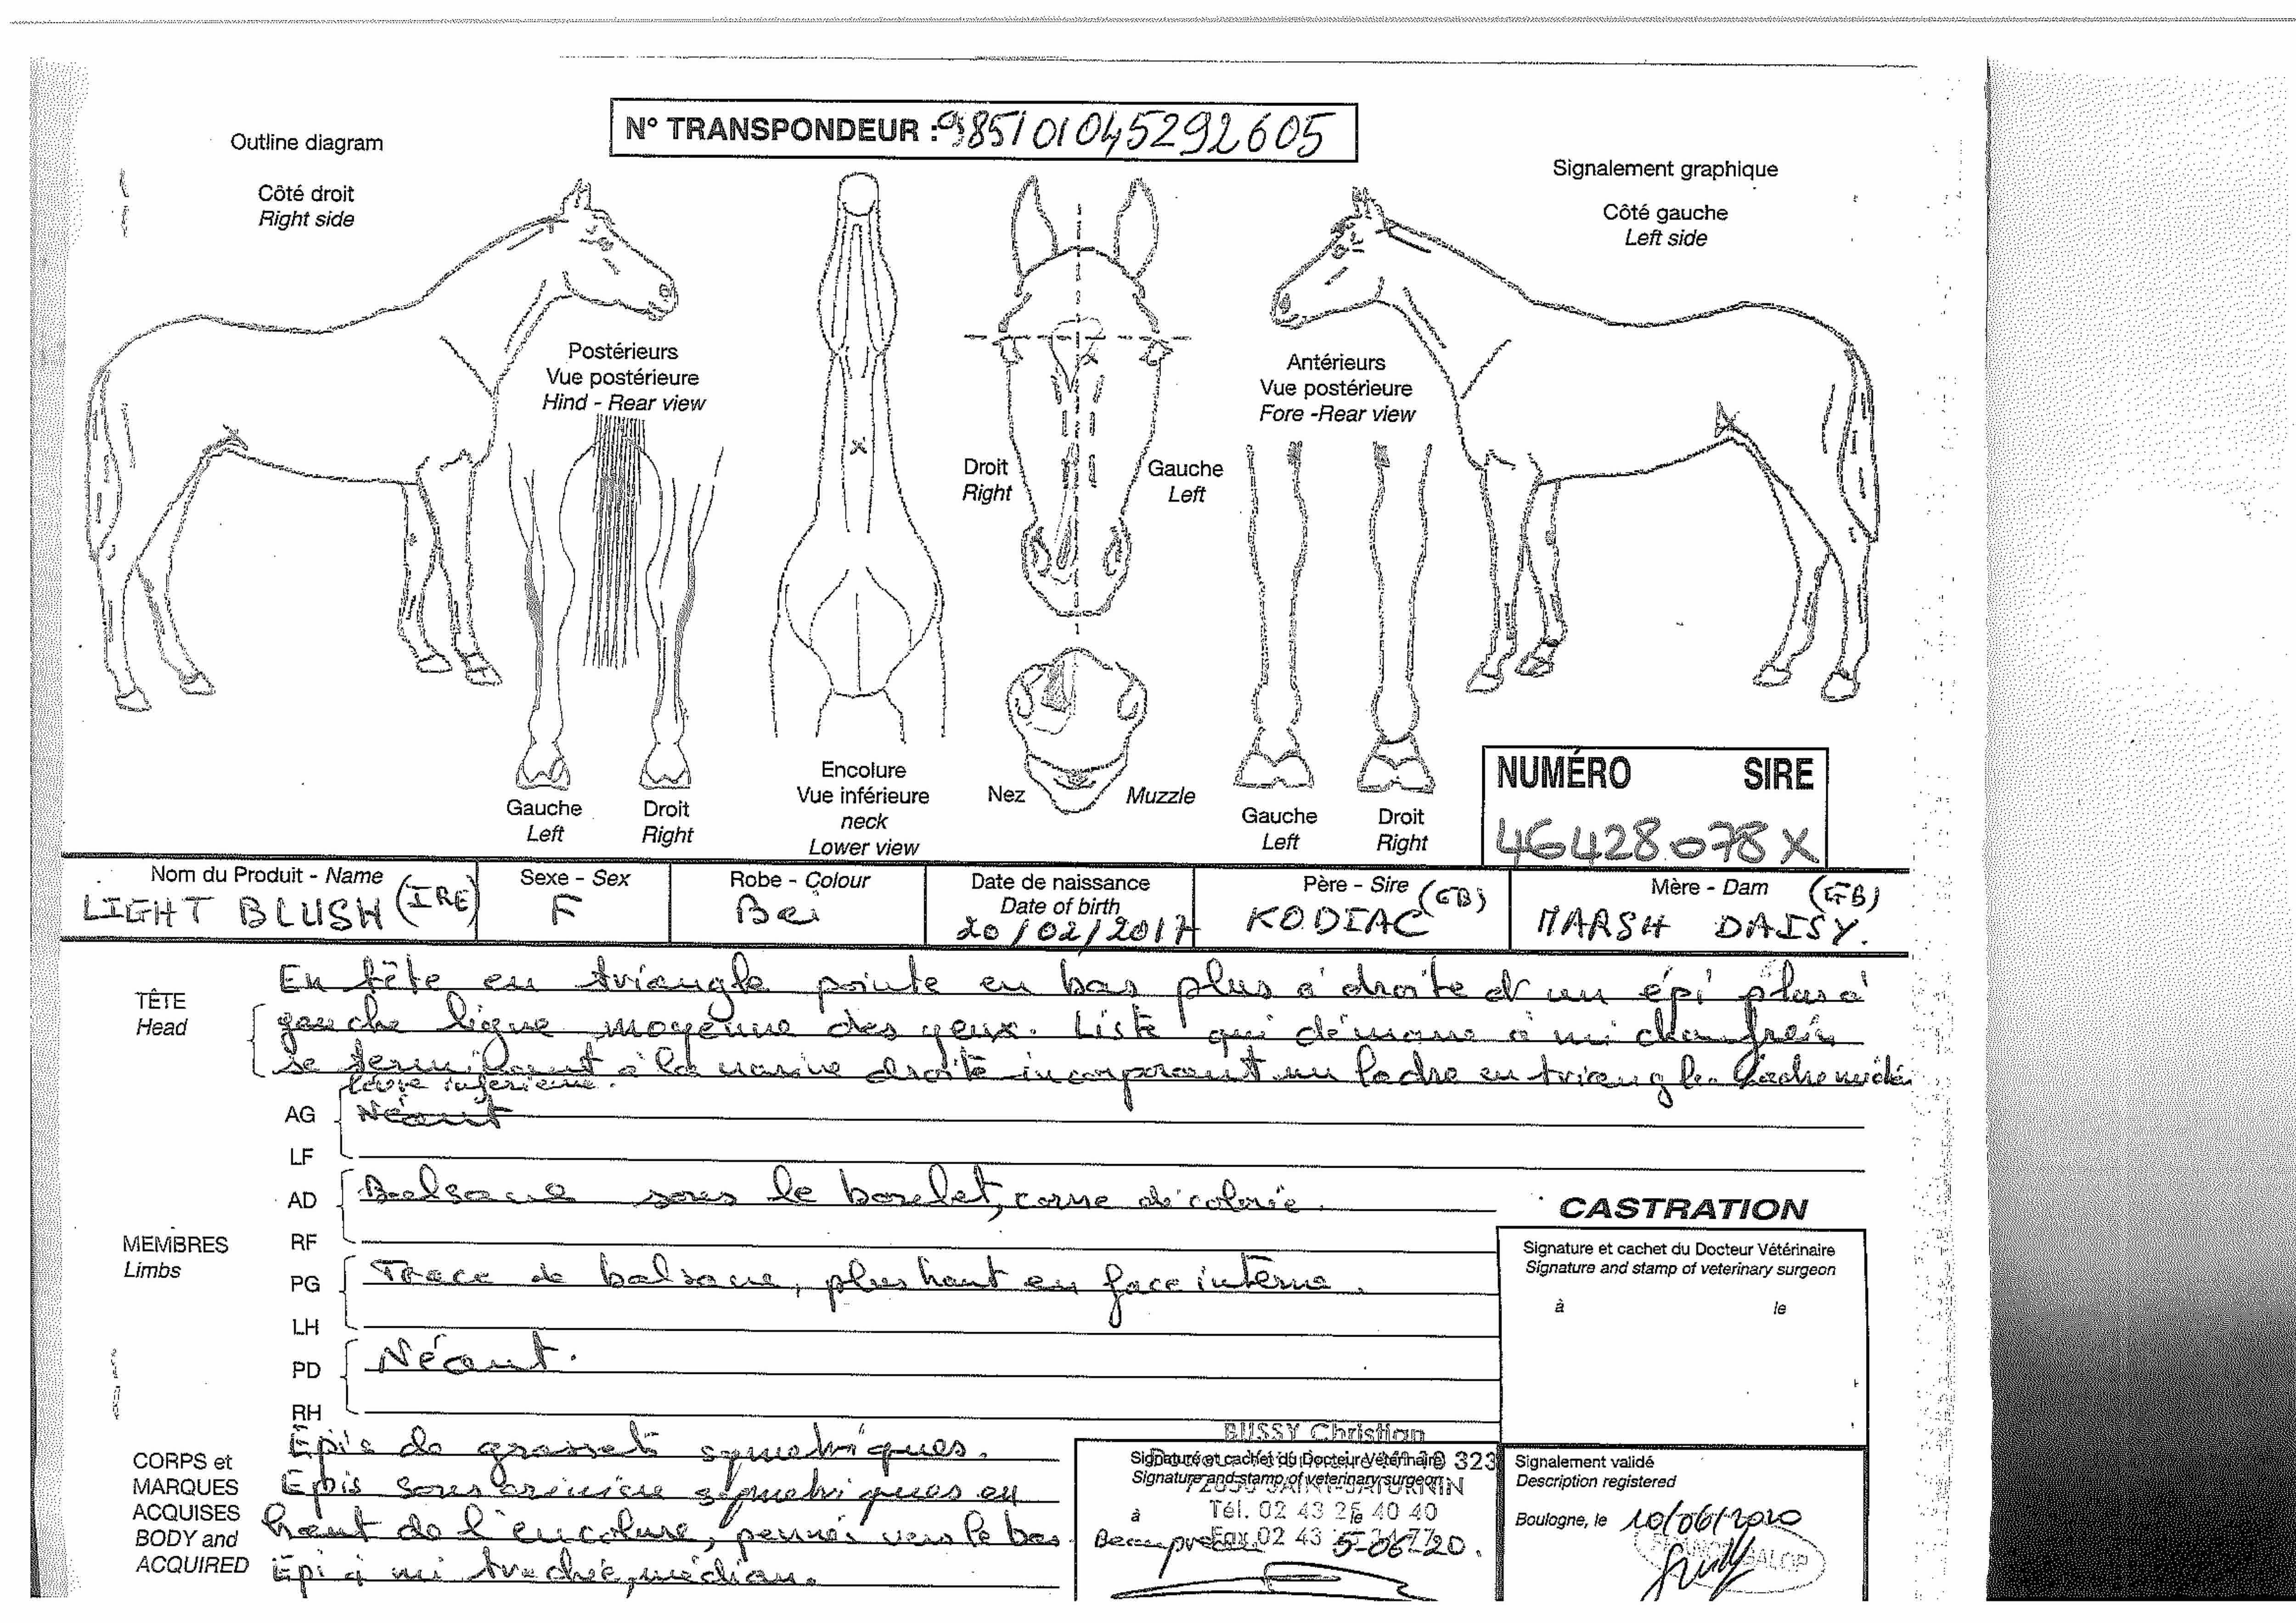 N° TRANSPONDEUR : 985101045292605
Outline diagram
Côté droit
Right side
Signalement graphique
Côté gauche
Left side
Postérieurs
Vue postérieure
Hind - Rear view
Antérieurs
Vue postérieure
Fore -Rear view
Droit
Right
Gauche
Left
Gauche
Left
Droit
Right
Encolure
Vue inférieure
neck
Lower view
Nez
Muzzle
Gauche
Left
Droit
Right
NUMÉRO SIRE
46428078X
Nom du Produit - Name
LIGHT BLUSH (IRE)
Sexe - Sex
F
Robe - Colour
Bai
Date de naissance
Date of birth
20/02/2017
Père - Sire
KODIAC (GB)
Mère - Dam
MARSH DAISY. (GB)
TÊTE
Head
En tête en triangle pointe en bas plus à droite d'un épi plus à
gauche ligne moyenne des yeux. Liste qui démarre à mi chanfrein
se terminant à la narine droite incorporant un ladre en triangle. Ladre
lèvre inférieure.
MEMBRES
Limbs
AG
LF
Néant
AD
RF
Balsane sous le bourrelet, corne décolorée.
PG
LH
Trace de balsane, plus haut en face interne.
PD
RH
Néant.
CASTRATION
Signature et cachet du Docteur Vétérinaire
Signature and stamp of veterinary surgeon
à le
CORPS et
MARQUES
ACQUISES
BODY and
ACQUIRED
Epis de grasset symetriques.
Epis sous crinière symetriques en
haut de l'encolure, pennés vers le bas
Epi à mi trachée, médian.
BUSSY Christian
Signature et cachet du Docteur Vétérinaire
323
Signature and stamp of veterinary surgeon
SAINT-SATURNIN
Tél. 02 43 25 40 40
à le
Fax 02 43
5-06-20.
Signalement validé
Description registered
Boulogne, le 10/06/2020
FRANCE GALOP